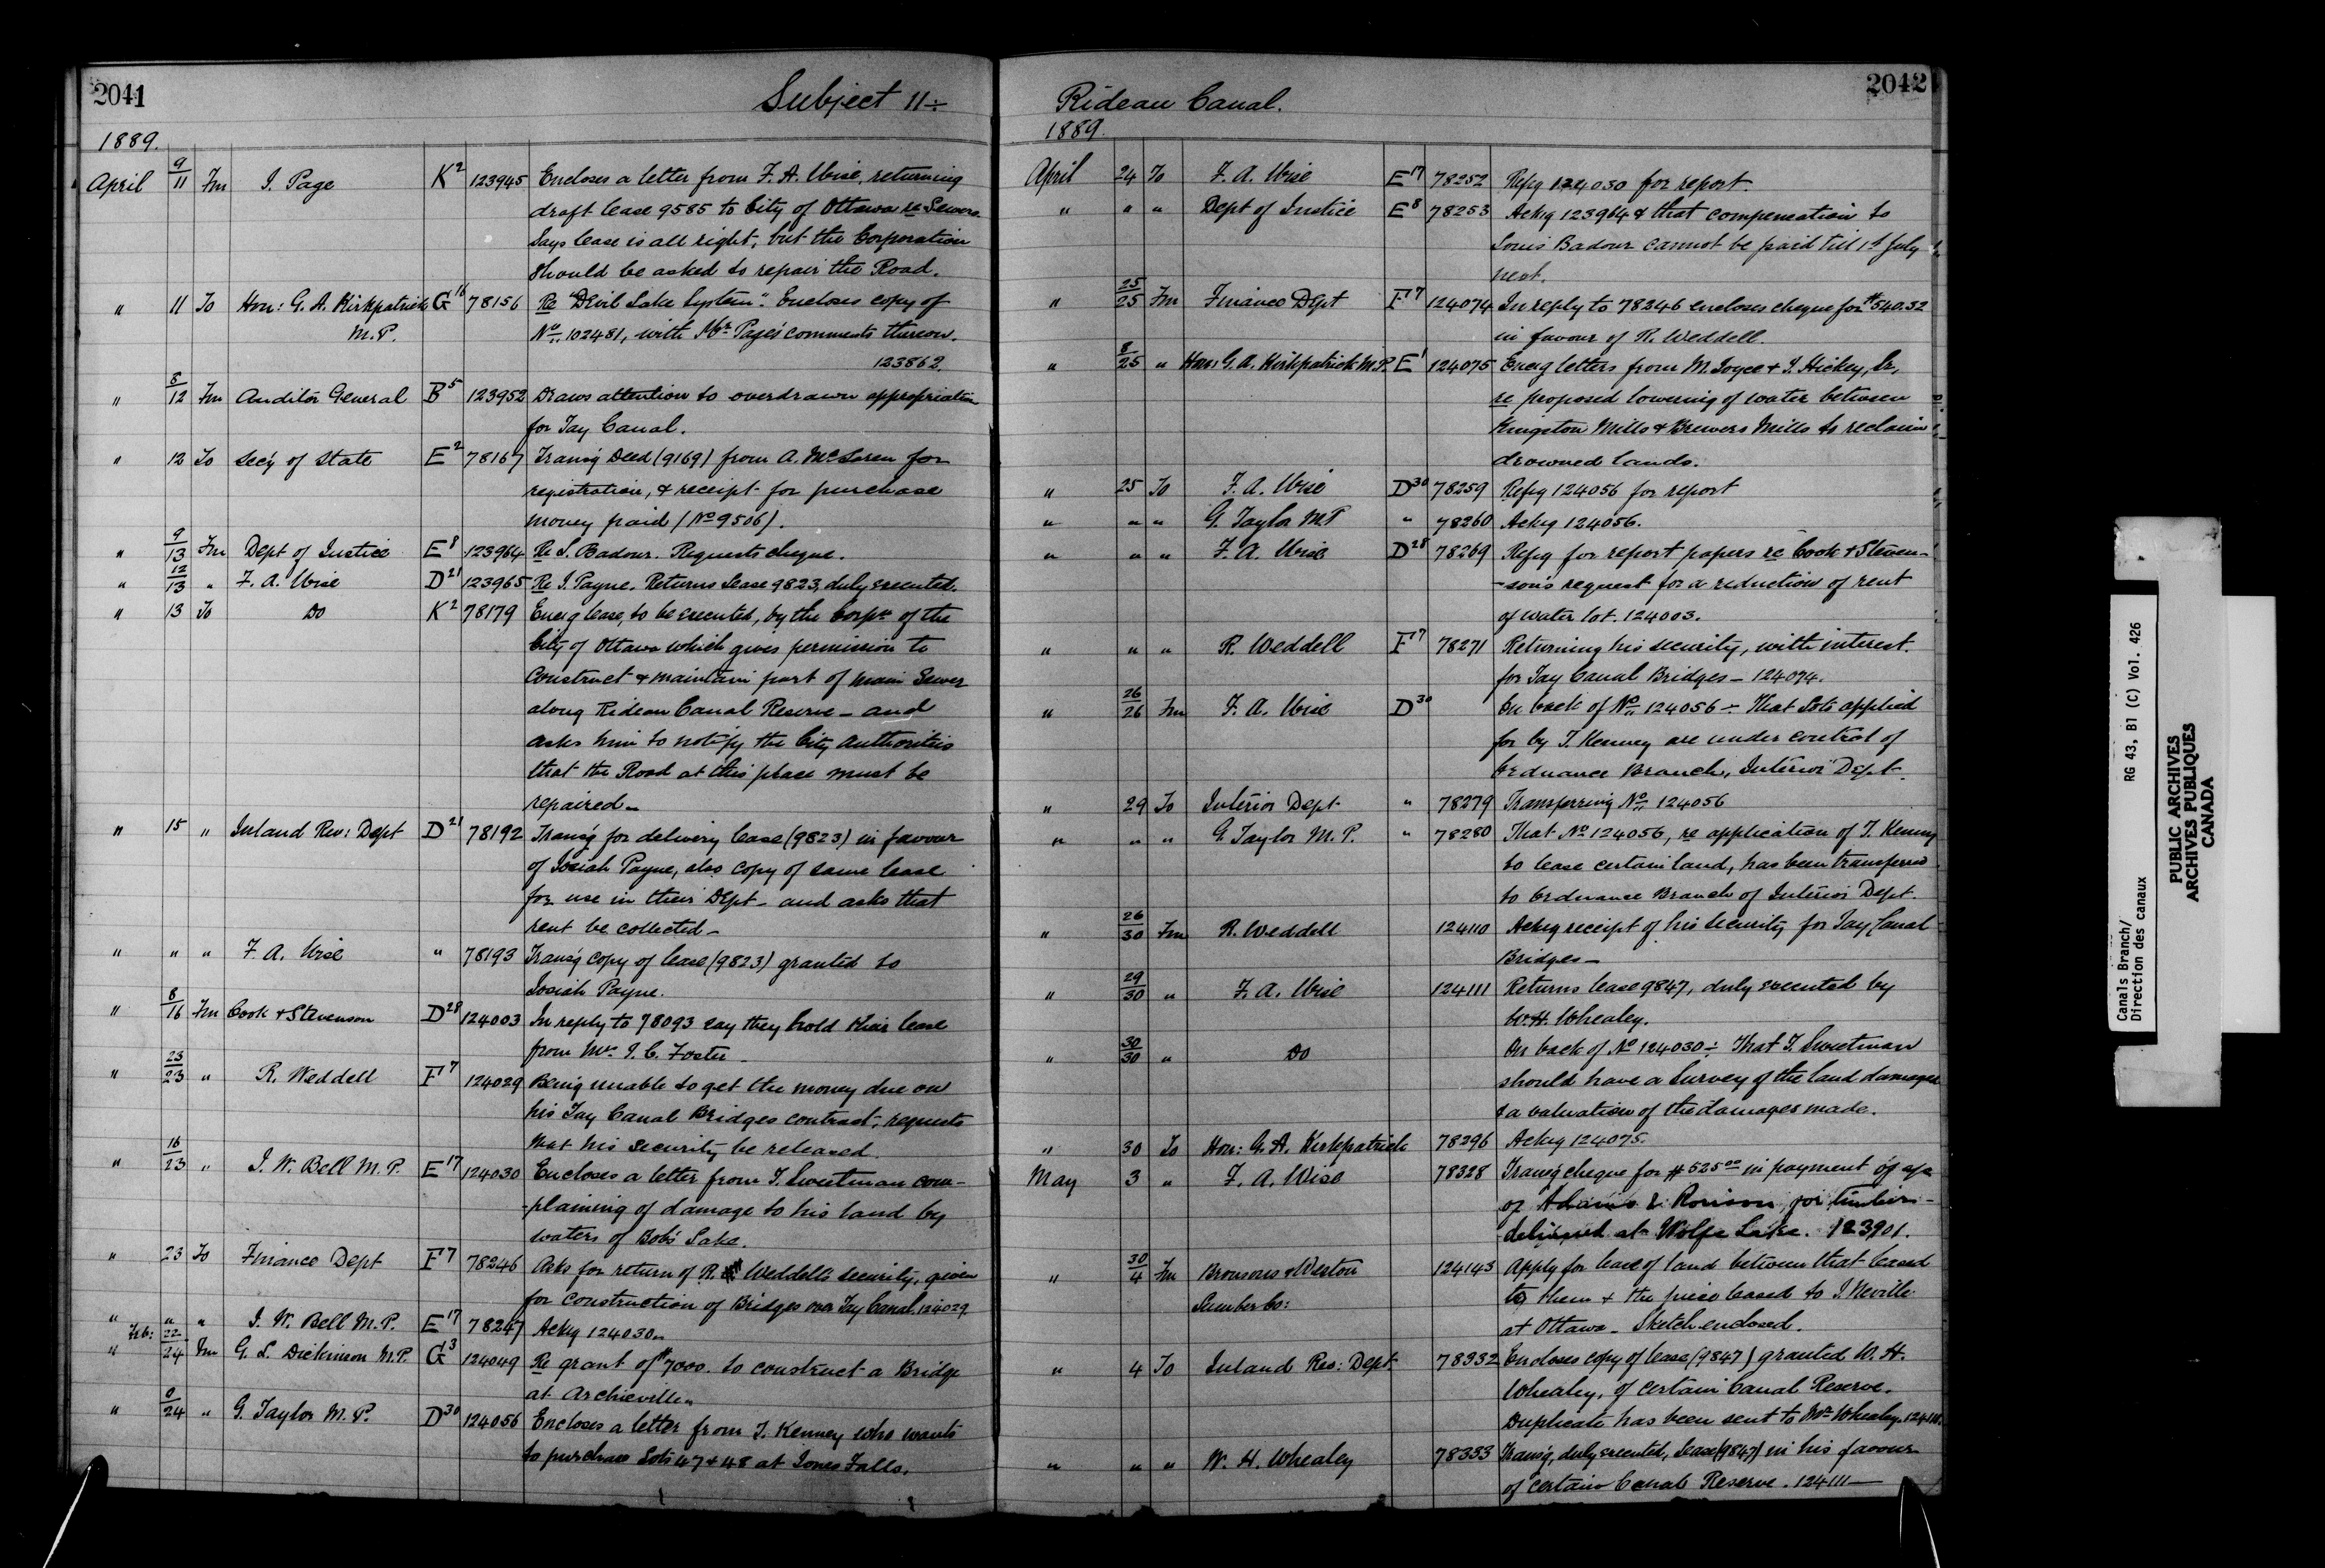 2041
Subject 11÷
1889.
April 9/11 Fm J. Page K2 123945 Encloses a letter from F. A. Wise, returning
draft lease 9585 to City of Ottawa re Sewers
Says lease is all right, but the Corporation
should be asked to repair the Road.
" 11 To Hon: G. A. Kirkpatrick G16 78156 Re "Devil Lake System". Encloses copy of
M.P. No 102481, with Mr Page's comments thereon.
123862.
" 8/12 Fm Auditor General B5 123952 Draws attention to overdrawn appropriation
for Tay Canal.
" 12 To Sec'y of State E2 78167 Transg Deed (9169) from A. McLaren for
registration, & receipt for purchase
money paid (No 9506).
" 9/13 Fm Dept of Justice E8 123964 Re L. Badour. Requests cheque.
" 12/13 " F. A. Wise D21 123965 Re J. Payne. Returns Lease 9823, duly executed.
" 13 To Do K2 78179 Encg lease, to be executed, by the Corpn of the
City of Ottawa which gives permission to
construct & maintain part of main Sewer
along Rideau Canal Reserve – and
asks him to notify the City Authorities
that the Road at this place must be
repaired –
" 15 " Inland Rev: Dept D21 78192 Transg for delivery lease (9823) in favour
of Josiah Payne, also copy of same lease
for use in their Dept – and asks that
rent be collected –
" " " F. A. Wise " 78193 Transg copy of lease (9823) granted to
Josiah Payne.
" 8/16 Fm Cook & Stevenson D28 124003 In reply to 78093 say they hold their lease
from Mr. J. C. Foster –
" 23/23 " R. Weddell F7 124029 Being unable to get the money due on
his Tay Canal Bridges contract, requests
that his security be released.
" 16/23 " J. W. Bell M.P. E17 124030 Encloses a letter from T. Sweetman com-
-plaining of damage to his land by
waters of Bob's Lake.
" 23 To Finance Dept F7 78246 Asks for return of R. Weddell's security, given
for construction of Bridges over Tay Canal. 124029
" " " J. W. Bell M.P. E17 78247 Ackg 124030.
" Feb: 22/24 Fm G. L. Dickinson M.P. G3 124049 Re grant of $7000. to construct a Bridge
at Archieville.
" 0/24 " G. Taylor M.P. D30 124056 Encloses a letter from T. Kenney who wants
to purchase Lots 47 & 48 at Jones Falls.
2042
Rideau Canal.
1889.
April 24 To F. A. Wise E17 78252 Refg 124030 for report.
" " " Dept of Justice E8 78253 Ackg 123964 & that compensation to
Louis Badour cannot be paid till 1st July
next.
" 25/25 Fm Finance Dept F7 124074 In reply to 78246 encloses cheque for $540.52
in favour of R. Weddell.
" 8/25 " Hon: G. A. Kirkpatrick M.P. E1 124075 Encg letters from M. Joyce & J. Hickey, Sr,
re proposed lowering of water between
Kingston Mills & Brewers Mills to reclaim
drowned lands.
" 25 To F. A. Wise D30 78259 Refg 124056 for report
" " " G. Taylor M.P " 78260 Ackg 124056.
" " " F. A. Wise D28 78269 Refg for report papers re Cook & Steven-
-son's request for a reduction of rent
of water lot. 124003.
" " " R. Weddell F7 78271 Returning his security, with interest.
for Tay Canal Bridges – 124074.
" 26/26 Fm F. A. Wise D30 On back of No 124056 ÷ That Lots applied
for by T. Kenney are under control of
Ordnance Branch, Interior Dept.
" 29 To Interior Dept " 78279 Transferring No 124056
" " " G Taylor M.P. " 78280 That No 124056, re application of T. Kenney
to lease certain land, has been transferred
to Ordnance Branch of Interior Dept.
" 26/30 Fm R. Weddell 124110 Ackg receipt of his security for Tay Canal
Bridges –
" 29/30 " F. A. Wise 124111 Returns lease 9847, duly executed by
W. H. Whealey.
" 30/30 " Do On back of No 124030 ÷ That T. Sweetman
should have a Survey of the land damaged
& a valuation of the damages made.
" 30 To Hon: G. A. Kirkpatrick 78296 Ackg 124075.
May 3 " F. A. Wise 78328 Transg cheque for $525.00 in payment of a/c
of Adams & Ronison for timber
delivered at Wolfe Lake. 123901.
" 30/4 Fm Bronsons & Weston 124143 Apply for lease of land between that leased
Lumber Co: to them & the piece leased to J. Neville
at Ottawa – Sketch enclosed.
" 4 To Inland Rev: Dept. 78332 Encloses copy of lease (9847) granted W. H.
Whealey, of certain Canal Reserve.
Duplicate has been sent to Mr Whealey. 124111.
" " " W. H. Whealey 78333 Transg, duly executed, lease (9847) in his favour
of certain Canal Reserve. 124111 –
Canals Branch/
Direction des canaux
RG 43, B1 (C) Vol. 426
PUBLIC ARCHIVES
ARCHIVES PUBLIQUES
CANADA